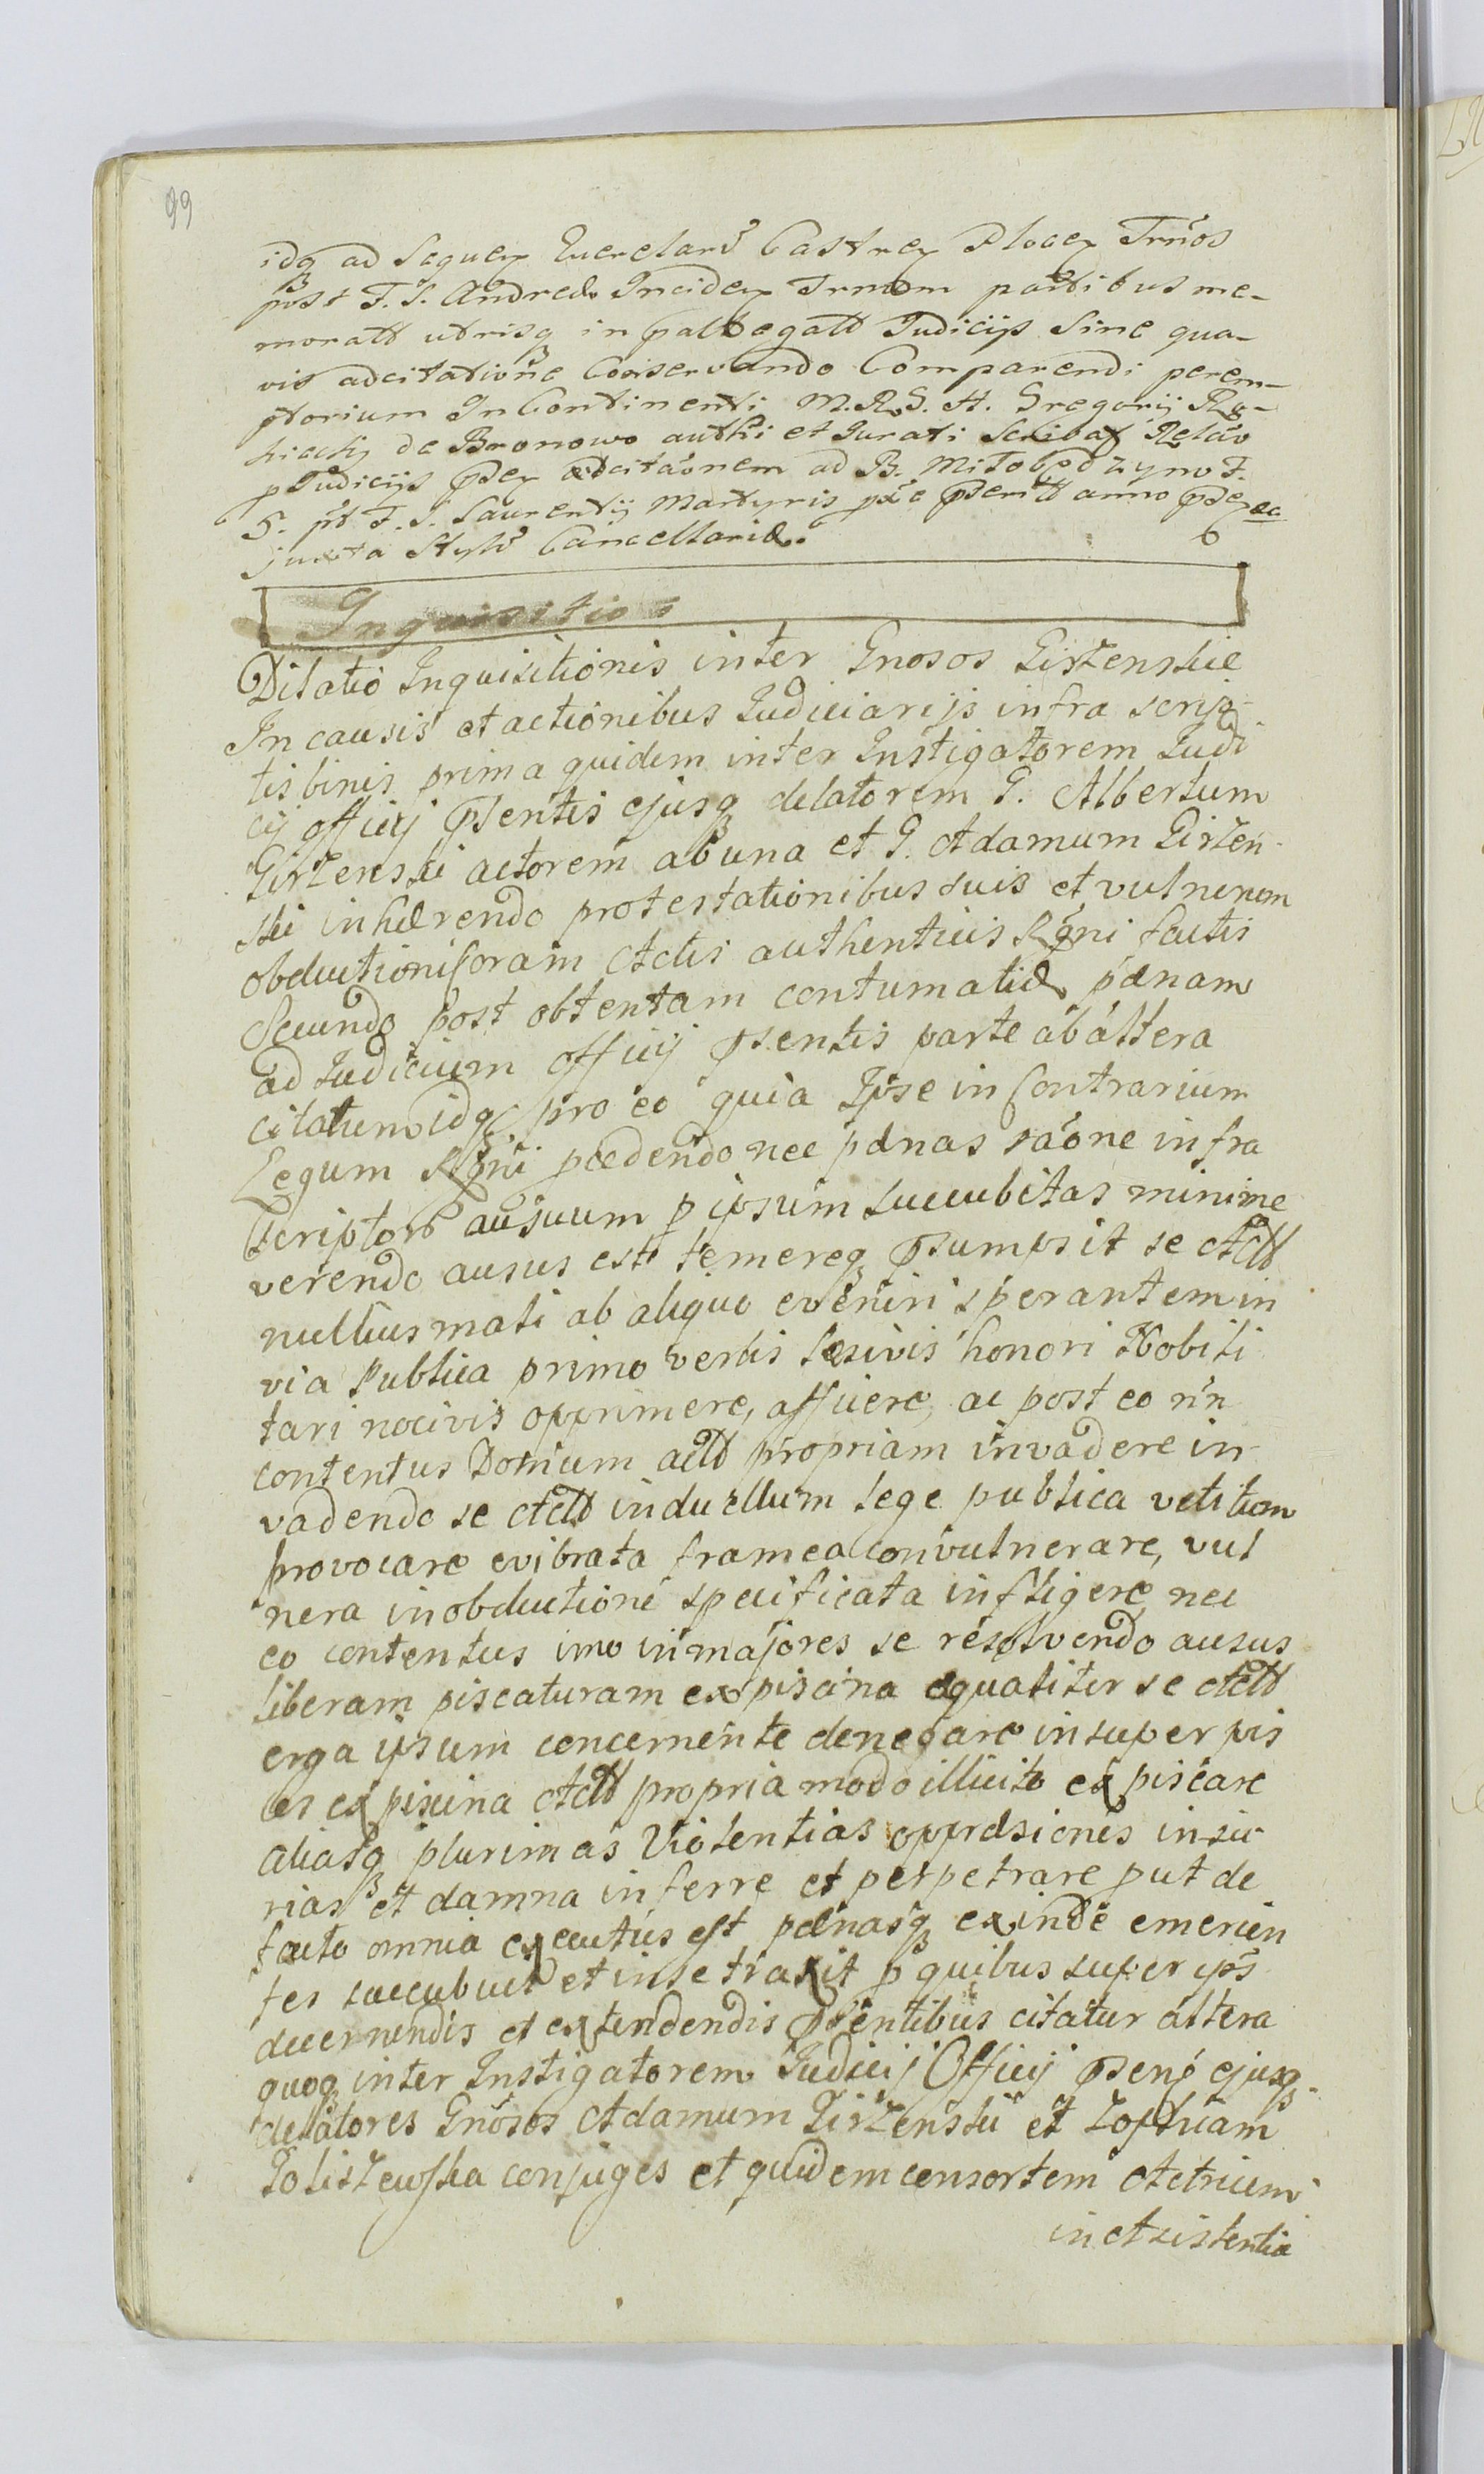 99
idq ad Sequen Querelarū Castren Plocen Trńos
post F. S. Andreæ Inciden Trnum partibus me-
moratt utrisq in pallegatt Judicijs Sine qua-
vis adcitatione Conservando Comparendi perem-
ptorium In Continenti M. R. S. A. Gregorij
de Bronowo authi et Jurati Scribæ
p Judicijs pden adcitaonem ad B. F.
5. pt F. S. Laurentij Martyris pxe psentt anno pden ec
juxta Stylū Cancellariæ.
Inquisitio
Dilatio Inquisitionis inter Gnosos Girzenskie
In causis et actionibus Judiciarijs infra scrip-
tis binis prima quidem inter Instigatorem Judi
cij officij psentis ejusq delatorem G. Albertum
Girzenski actorem ab una et G. Adamum Girzen-
ski inhærendo protestationibus suis et vulnerum
obductioni coram Actis authenticis Rgni factis
Secundo post obtentam contumatiæ pænam
ad Judicium officij psentis parte ab altera
citatum idq pro eo quia Ipse in Contrarium
Legum Rgni pcedendo nec pænas raone infra
scriptorū ausuum p ipsum succubitas minime
verendo ausus est temereq psumpsit se Actt
nullius mali ab aliquo eveniri sperantem in
via Publica primo verbis læsivis honori Nobili
tari nocivis opprimere, afficere, ac post eo nn
contentus Domum actt propriam invadere in
vadendo se Actt in duellum lege publica vetitum
provocare evibrata framea convulnerare, vul
nera in obductione specificata infligere nec
eo contentus imo in majores se resolvendo ausus
liberam piscaturam ex piscina æqualiter se Actt
erga ipsum concernente denegare insuper pis
ces ex piscina Actt propria modo illicito expiscare
aliasq plurimas Violentias oppræsiones inju
rias et damna inferre et perpetrare put de
facto omnia executus est pænasq exinde emerien
tes succubuit et in se traxit p quibus super ipś
decernendis et extendendis psentibus citatur altera
quoq inter Instigatorem Judicij Officij psen ejusq
delatores Gnosos Adamum Girzenski et Zophiam
Goliszewska conjuges et quidem consortem Actricem
in Assistentia